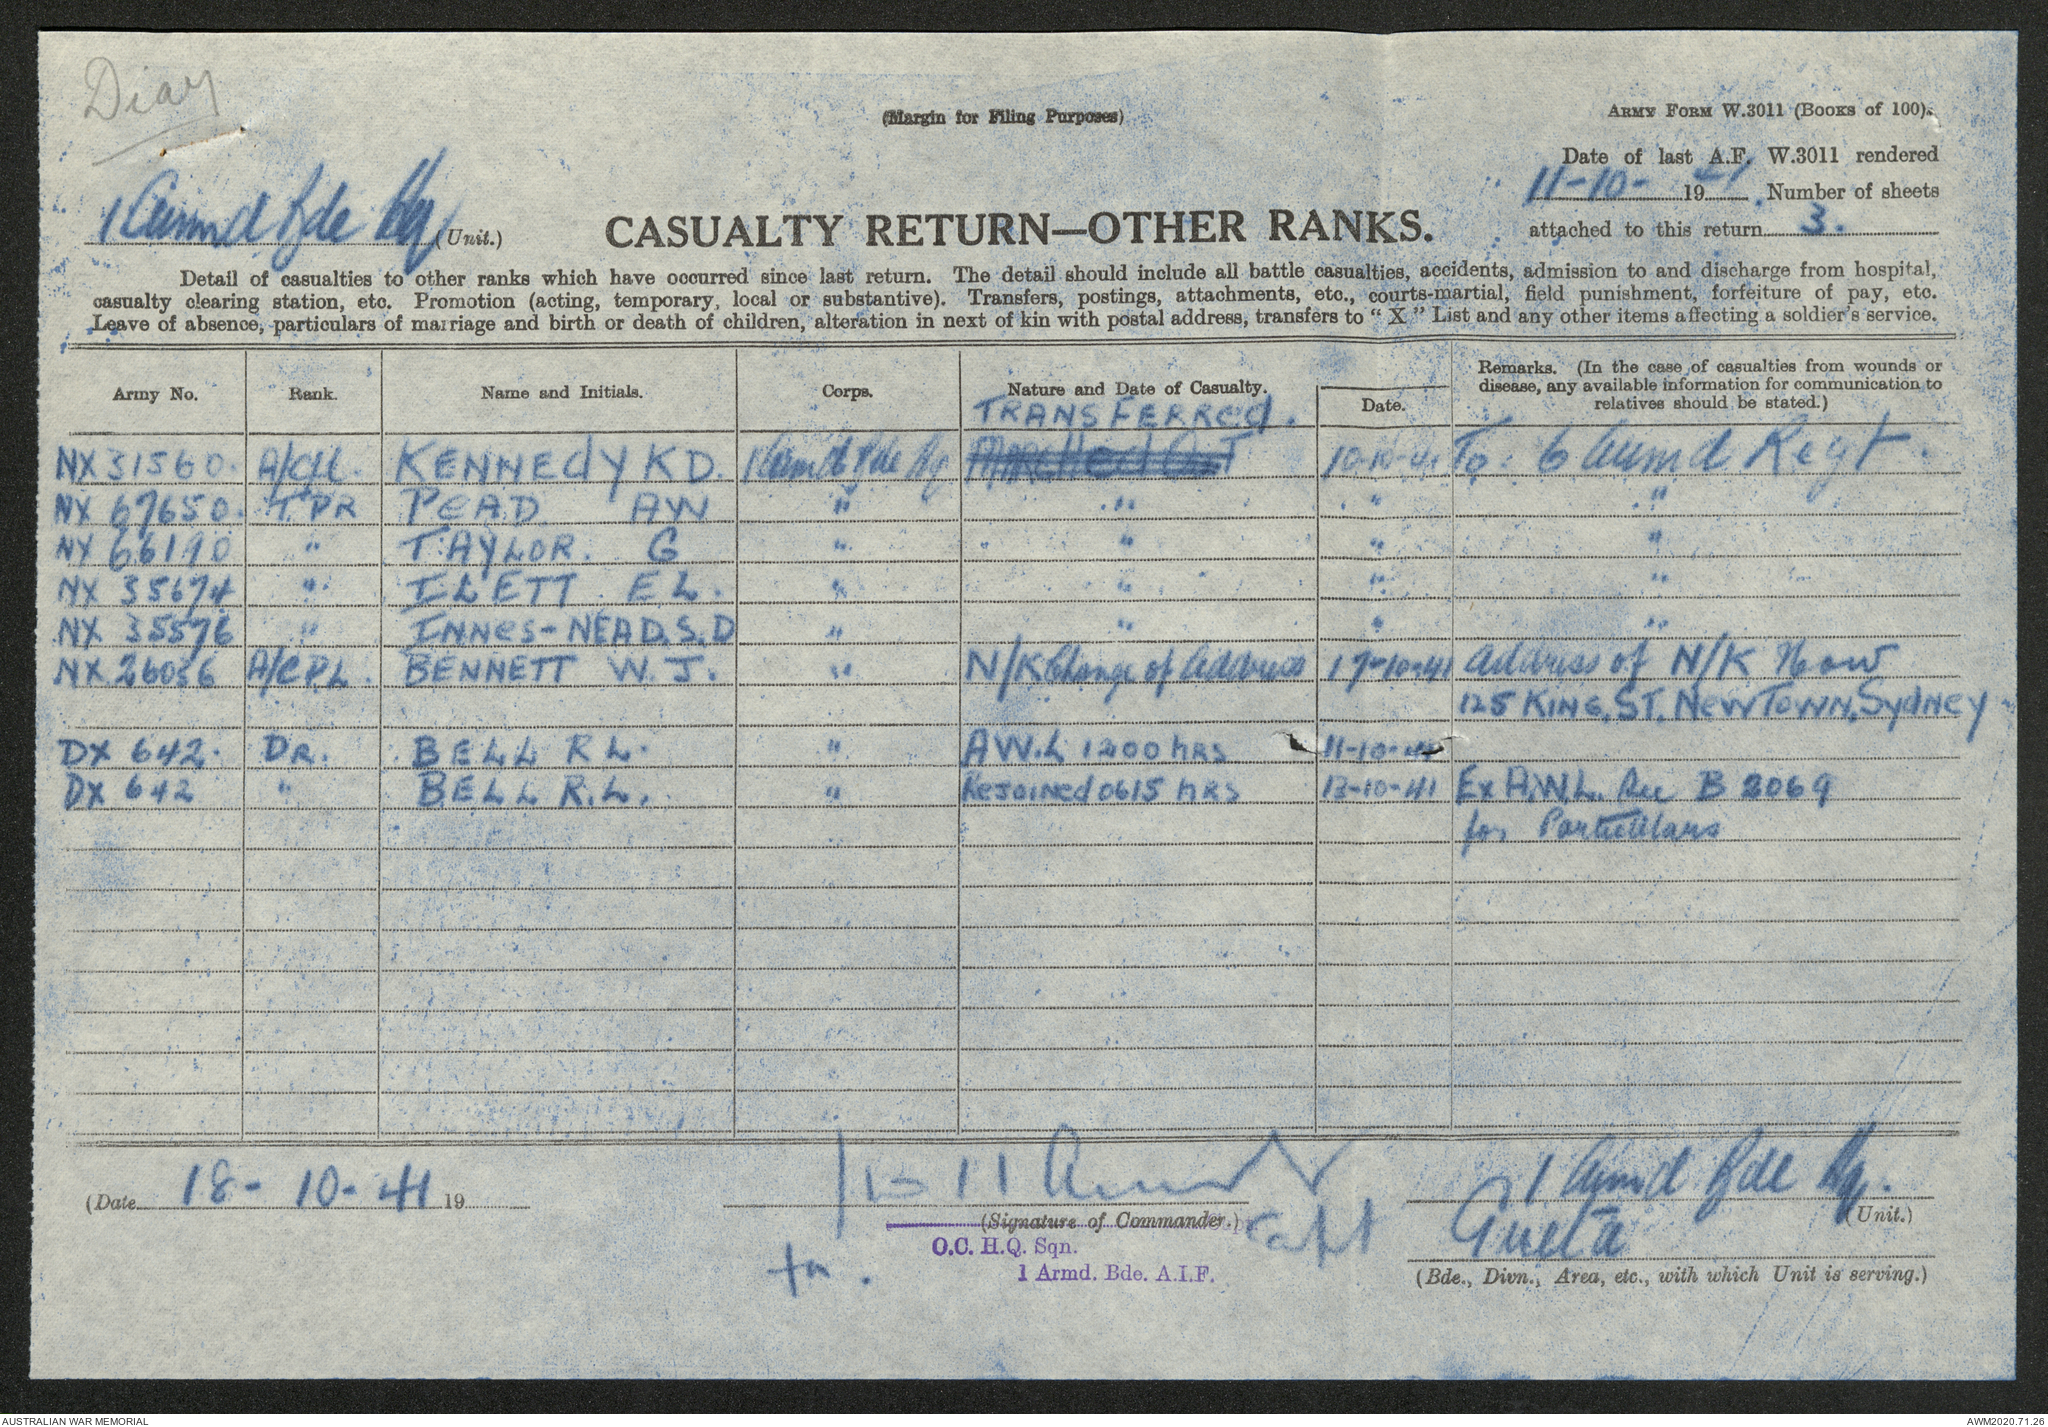 Diary
(Margin for Filing Purposes)
ARMY FORM W.3011 (BOOKS OF 100).
Date of last A.F. W.3011 rendered
11-10- 1941. Number of sheets
attached to this return 3.
1 Armd Bde Hq (Unit.)
CASUALTY RETURN—OTHER RANKS.
Detail of casualties to other ranks which have occurred since last return. The detail should include all battle casualties, accidents, admission to and discharge from hospital,
casualty clearing station, etc. Promotion (acting, temporary, local or substantive). Transfers, postings, attachments, etc., courts-martial, field punishment, forfeiture of pay, etc.
Leave of absence, particulars of marriage and birth or death of children, alteration in next of kin with postal address, transfers to "X" List and any other items affecting a soldier's service.
Army No. Rank. Name and Initials. Corps. Nature and Date of Casualty. Date. Remarks. (In the case of casualties from wounds or
disease, any available information for communication to
relatives should be stated.)
TRANSFERRed.
NX 31560. A/CPL. KENNEdY K D. 1 Armd Bde Hq Marched Out 10-10-41 To: 6 Armd Regt.
NX 67650. TPR PEAD. AW " " " "
NX 66190 " TAYLOR. G " " " "
NX 35674 " ILETT E L. " " " "
NX 35576 " INNES-NEAD. S. D " " " "
NX 26056 A/CPL. BENNETT W. J. " N/K Change of Address 17-10-41 Address of N/K Now
125 KING. ST. NEWTOWN. SYdNEY
DX 642. DR. BELL R L. " A W.L 1200 hRS 11-10-41
DX 642 " BELL R.L. " Rejoined 0615 hRS 13-10-41 Ex A.W.L. See B 2069
for Particulars
(Date 18-10-41 19
(Signature of Commander.)
Capt
O.C. H.Q. Sqn.
1 Armd. Bde. A.I.F.
1 Armd Bde Hq.
(Unit.)
Greta
(Bde., Divn., Area, etc., with which Unit is serving.)
AUSTRALIAN WAR MEMORIAL
AWM2020.71.26